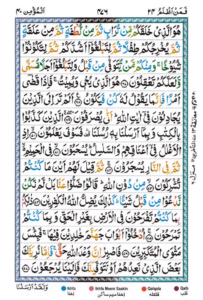 فَمَنْ اَظْلَمُ ٢٤
٤٢٦
اَلْمُؤْمِن ٤٠
هُوَ الَّذِيْ خَلَقَكُمْ مِّنْ تُرَابٍ ثُمَّ مِنْ نُّطْفَةٍ ثُمَّ مِنْ عَلَقَةٍ
ثُمَّ يُخْرِجُكُمْ طِفْلًا ثُمَّ لِتَبْلُغُوْۤا اَشُدَّكُمْ ثُمَّ لِتَكُوْنُوْا
شُيُوْخًا ۚ وَمِنْكُمْ مَّنْ يُّتَوَفّٰى مِنْ قَبْلُ وَلِتَبْلُغُوْۤا اَجَلًا مُّسَمًّى
وَّلَعَلَّكُمْ تَعْقِلُوْنَ هُوَ الَّذِيْ يُحْيٖ وَيُمِيْتُ ۚ فَاِذَا قَضٰۤى
اَمْرًا فَاِنَّمَا يَقُوْلُ لَهٗ كُنْ فَيَكُوْنُ اَلَمْ تَرَ اِلَى الَّذِيْنَ
يُجَادِلُوْنَ فِيْۤ اٰيٰتِ اللّٰهِ ؕ اَنّٰى يُصْرَفُوْنَ الَّذِيْنَ كَذَّبُوْا
بِالْكِتٰبِ وَبِمَاۤ اَرْسَلْنَا بِهٖ رُسُلَنَا ۛ فَسَوْفَ يَعْلَمُوْنَ اِذِ
الْاَغْلٰلُ فِيْۤ اَعْنَاقِهِمْ وَالسَّلٰسِلُ ؕ يُسْحَبُوْنَ فِي الْحَمِيْمِ
ثُمَّ فِي النَّارِ يُسْجَرُوْنَ ثُمَّ قِيْلَ لَهُمْ اَيْنَ مَا كُنْتُمْ
تُشْرِكُوْنَ مِنْ دُوْنِ اللّٰهِ ؕ قَالُوْا ضَلُّوْا عَنَّا بَلْ لَّمْ نَكُنْ
نَّدْعُوْا مِنْ قَبْلُ شَيْـًٔا ؕ كَذٰلِكَ يُضِلُّ اللّٰهُ الْكٰفِرِيْنَ ذٰلِكُمْ
بِمَا كُنْتُمْ تَفْرَحُوْنَ فِي الْاَرْضِ بِغَيْرِ الْحَقِّ وَبِمَا
كُنْتُمْ تَمْرَحُوْنَ اُدْخُلُوْۤا اَبْوَابَ جَهَنَّمَ خٰلِدِيْنَ فِيْهَا ۚ فَبِئْسَ
مَثْوَى الْمُتَكَبِّرِيْنَ فَاصْبِرْ اِنَّ وَعْدَ اللّٰهِ حَقٌّ ۚ فَاِمَّا نُرِيَنَّكَ
بَعْضَ الَّذِيْ نَعِدُهُمْ اَوْ نَتَوَفَّيَنَّكَ فَاِلَيْنَا يُرْجَعُوْنَ
وَلَقَدْ اَرْسَلْنَا
Ikhfa Meem Saakin
Qalqala